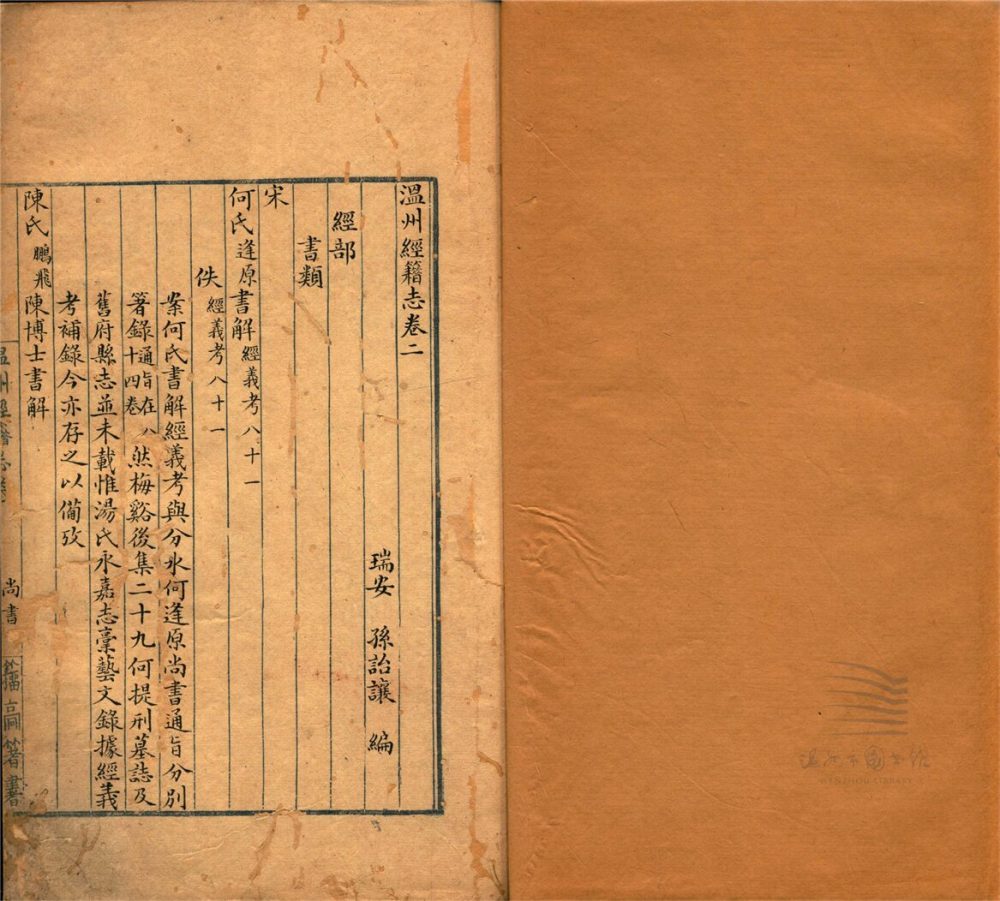 溫州經籍志卷二
瑞安 孫詒讓 編
經部
書類
宋
何氏逢原書解經義考八十一
佚經義考八十一
案何氏書解經義考與分水何逢原尚書通旨分別
箸錄通旨在八十四卷然梅谿後集二十九何提刑墓誌及
舊府縣志並未載惟湯氏永嘉志稾藝文錄據經義
考補錄今亦存之以僃攷
陳氏鵬飛陳博士書解
尚書
箸書
温州市图书馆
WENZHOU LIBRARY